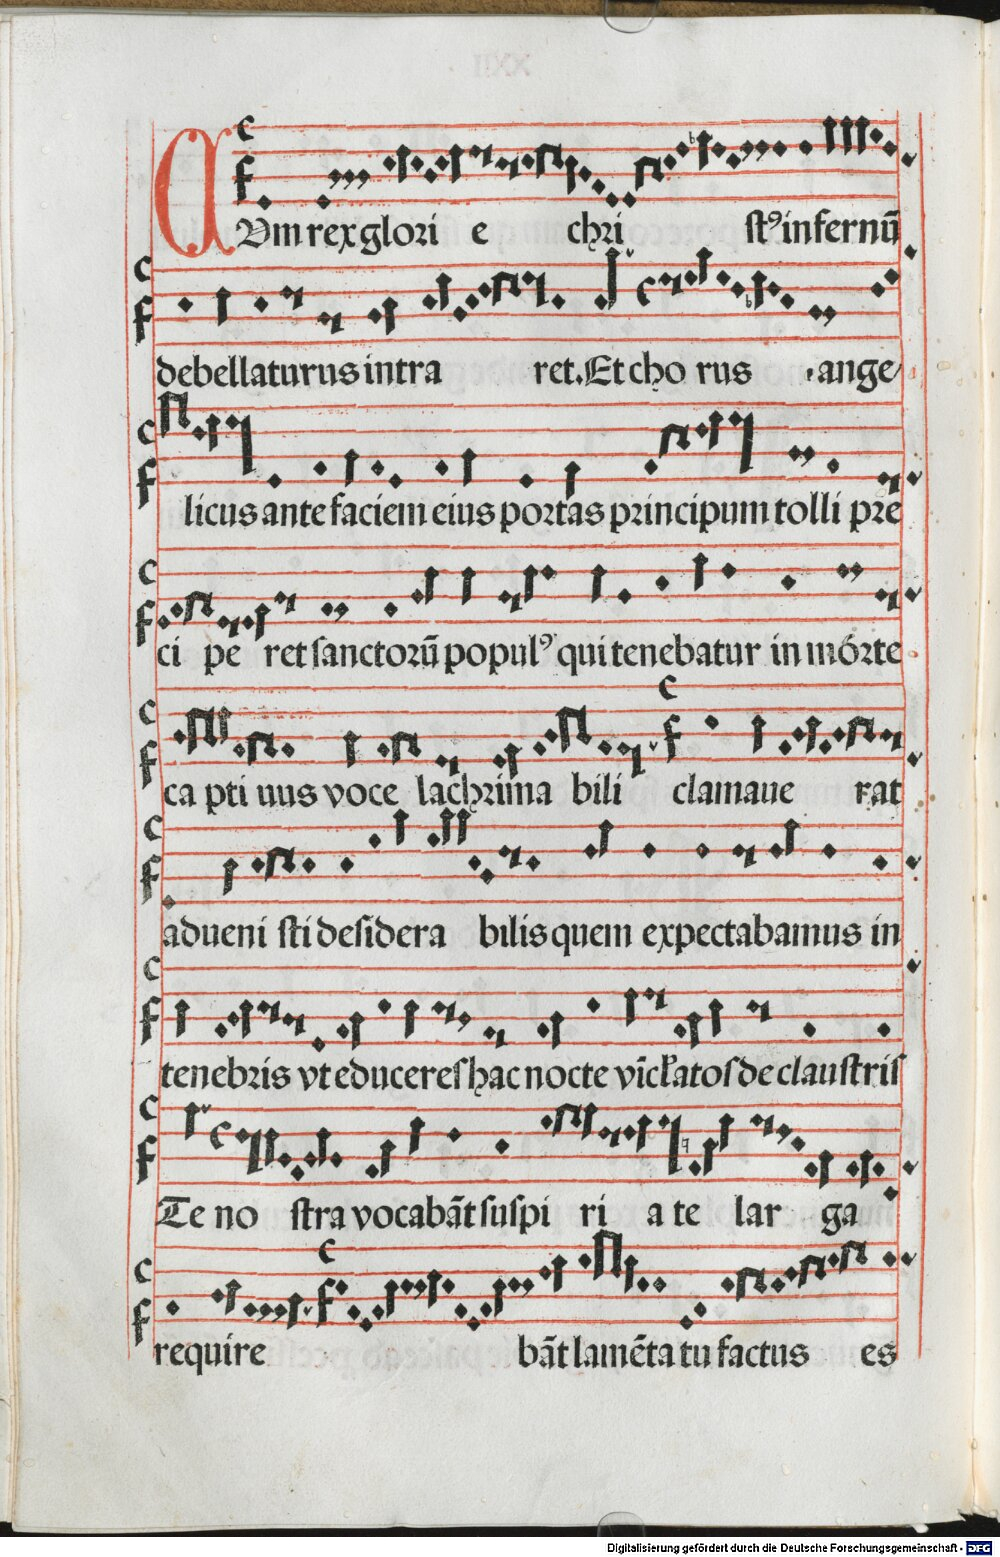 XXII
CVm rex glori e chri stꝰ infernū
debellaturus intra ret. Et cho rus ange
licus ante faciem eius portas principum tolli pre
ci pe ret sanctorū populꝰ qui tenebatur in morte
ca pti uus voce lachrima bili clamaue rat
adueni sti desidera bilis quem expectabamus in
tenebris vt educeres hac nocte vīcl'atos de claustris
Te no stra vocabāt suspi ri a te lar ga
require bāt lamēta tu factus es
Digitalisierung gefördert durch die Deutsche Forschungsgemeinschaft - DFG